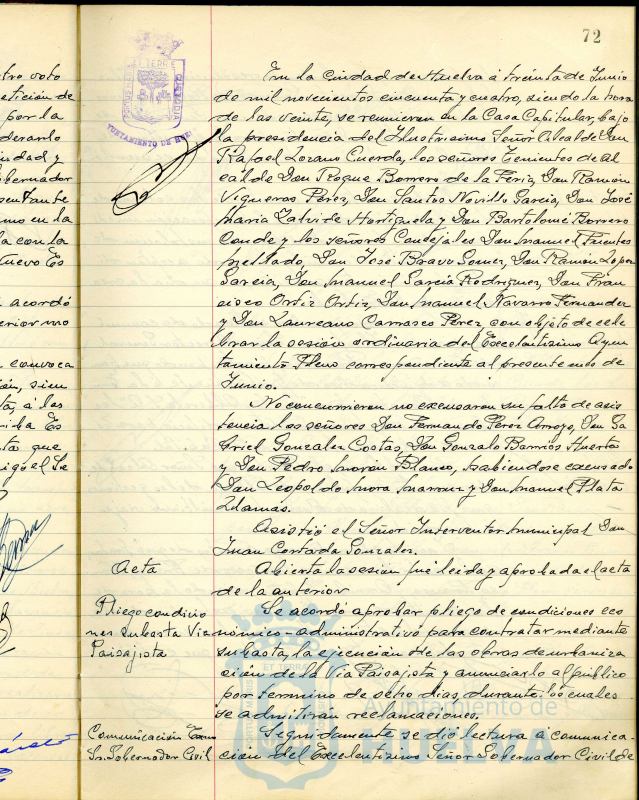 72
tro voto
etición de
por la
derarlo
udad y
obernador
sentante
mo en la
la con la
uevo Es
acordó
terior mo
convoca
ón, sien
ta, a las
riba Es
ta que
iguel Se
En la Ciudad de Huelva á treinta de Junio
de mil novecientos cincuenta y cuatro, siendo la hora
de las veinte, se reunieron en la Casa Capitular, bajo
la presidencia del Ilustrisimo Señor Alcalde Don
Rafael Lozano Cuerda, los señores Tenientes de Al
calde Don Roque Borrero de la Feria, Don Ramón
Vigueras Perez, Don Santos Novillo Garcia, Don José
Maria Zalvide Hortiguela y Don Bartolomé Borrero
Conde y los señores Concejales Don Manuel Fuentes
Mellado, Don José Bravo Gomez, Don Ramón Lopez
Garcia, Don Manuel Garcia Rodriguez, Don Fran
cisco Ortiz Ortiz, Don Manuel Navarro Fernandez
y Don Laureano Carrasco Perez, con objeto de cele
brar la sesión ordinaria del Excelentisimo Ayun
tamiento Pleno correspondiente al presente mes de
Junio.
No concurrieron no excusaron su falta de asis
tencia los señores Don Fernando Perez Arroyo, Don Ga
briel Gonzalez Costas, Don Gonzalo Barrios Huerta
y Don Pedro Morón Blanco, habiendose excusado
Don Leopoldo Mora y Don Manuel Plata
Llamas.
Asistió el Señor Interventor Municipal Don
Juan Cortada Gonzalez.
Acta
Abierta la sesión fué leida y aprobada el acta
de la anterior
Pliego condicio
nes subasta Via
Paisajista
Se acordó aprobar pliego de condiciones eco
nómico-administrativo para contratar mediante
subasta, la ejecución de las obras de urbaniza
ción de la Via Paisajista y anunciarlo al público
por termino de ocho dias, durante los cuales
se admitirán reclamaciones.
Comunicación Excmo
Sr. Gobernador Civil
Seguidamente se dió lectura á comunica-
ción del Excelentisimo Señor Gobernador Civil de
Ayuntamiento de
HUELVA